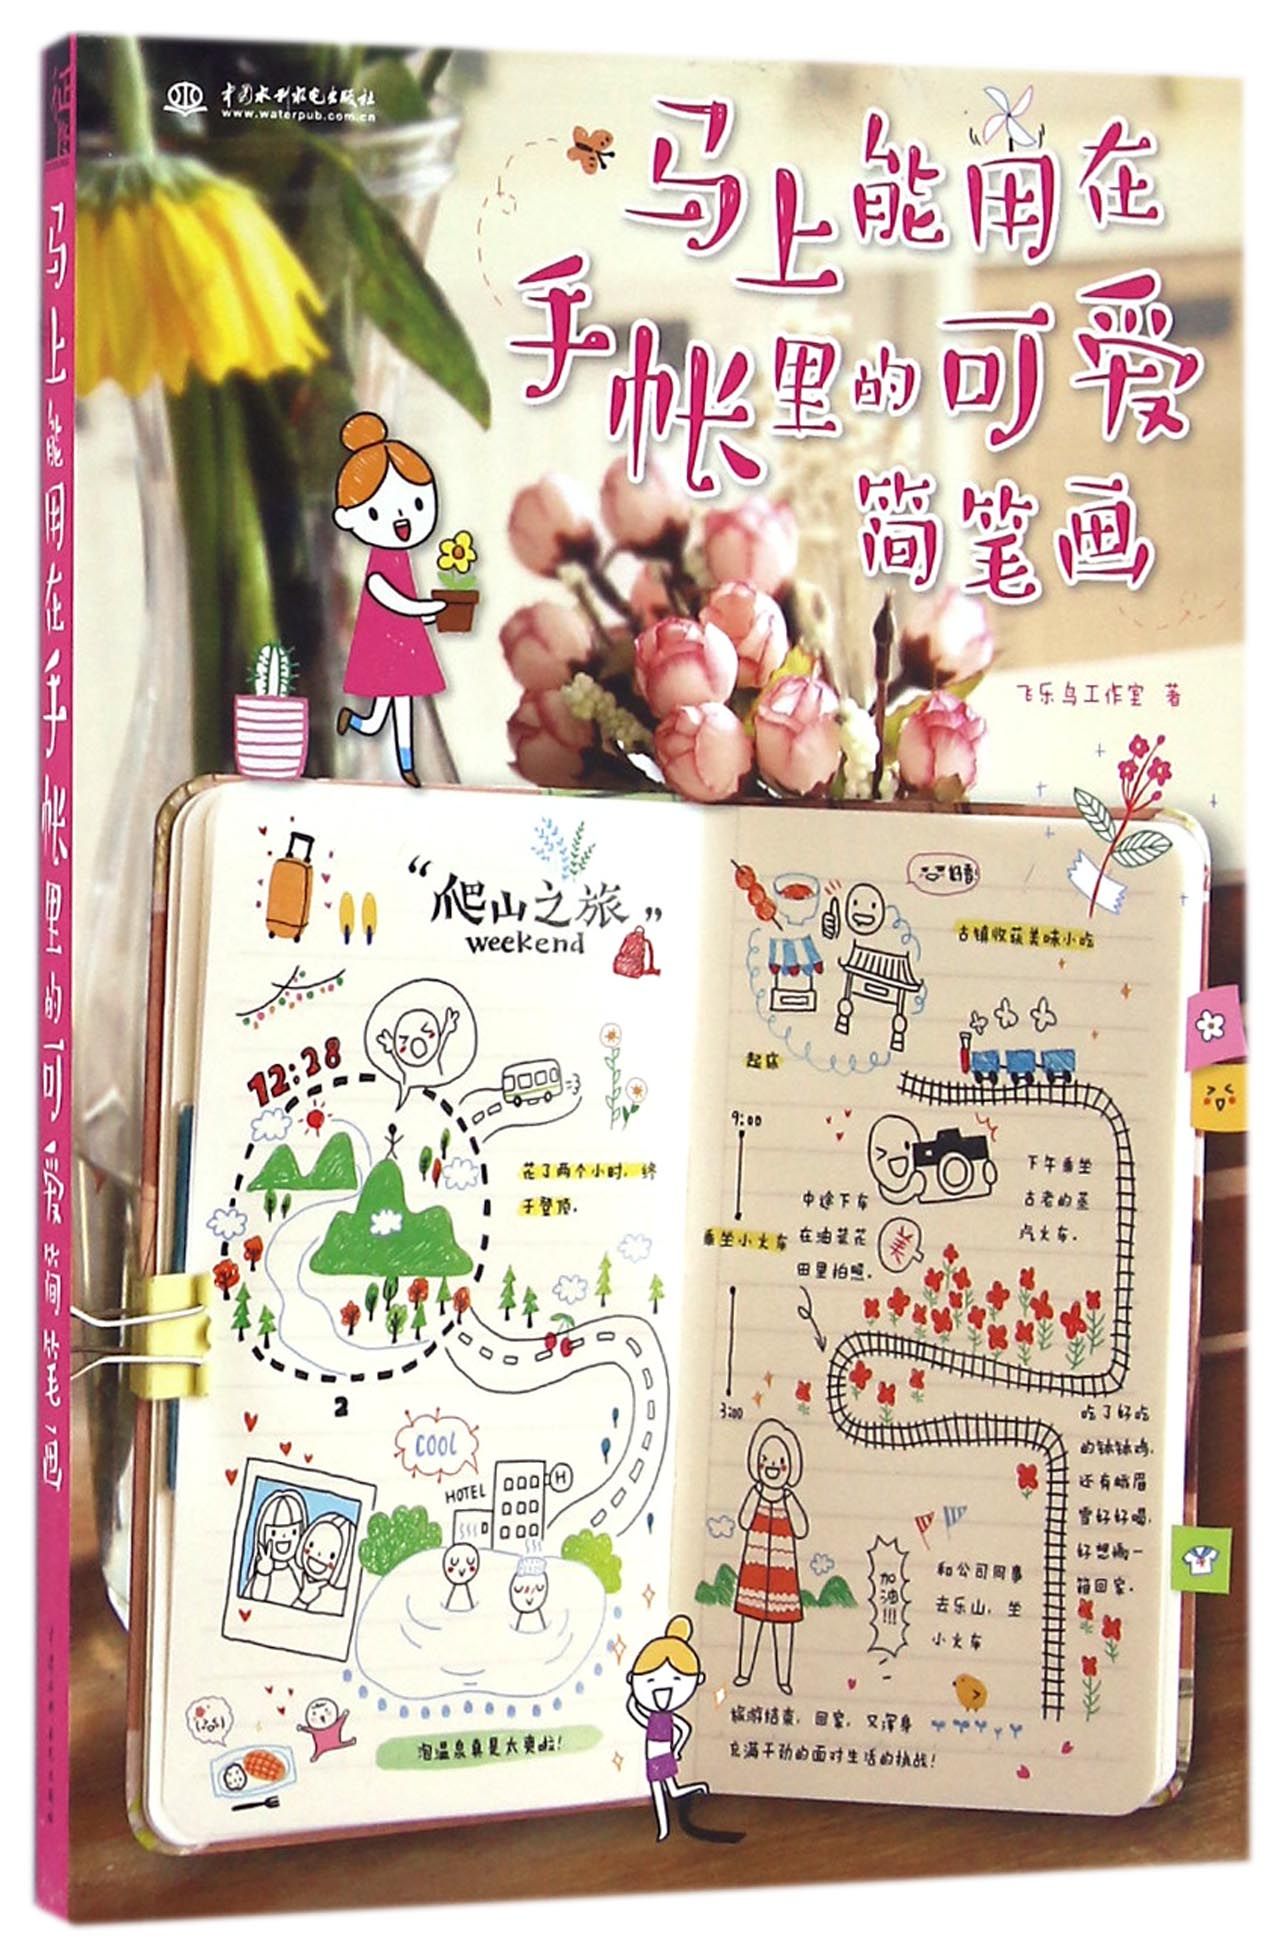 中国水利水电出版社
www.waterpub.com.cn
马上能用在
手帐里的可爱
简笔画
飞乐鸟工作室 著
马上能用在手帐里的可爱简笔画
“爬山之旅”
weekend
12:28
花了两个小时，终
于登顶。
2
COOL
HOTEL
H
泡温泉真是太爽啦！
古镇收获美味小吃
起床
9:00
乘坐小火车
3:00
中途下车
在油菜花
田里拍照。
美
下午乘坐
古老的蒸
汽火车。
吃了好吃
的钵钵鸡，
还有峨眉
雪好好喝，
好想搬一
箱回家。
加油!!!
和公司同事
去乐山，坐
小火车
旅游结束，回家，又浑身
充满干劲的面对生活的挑战！